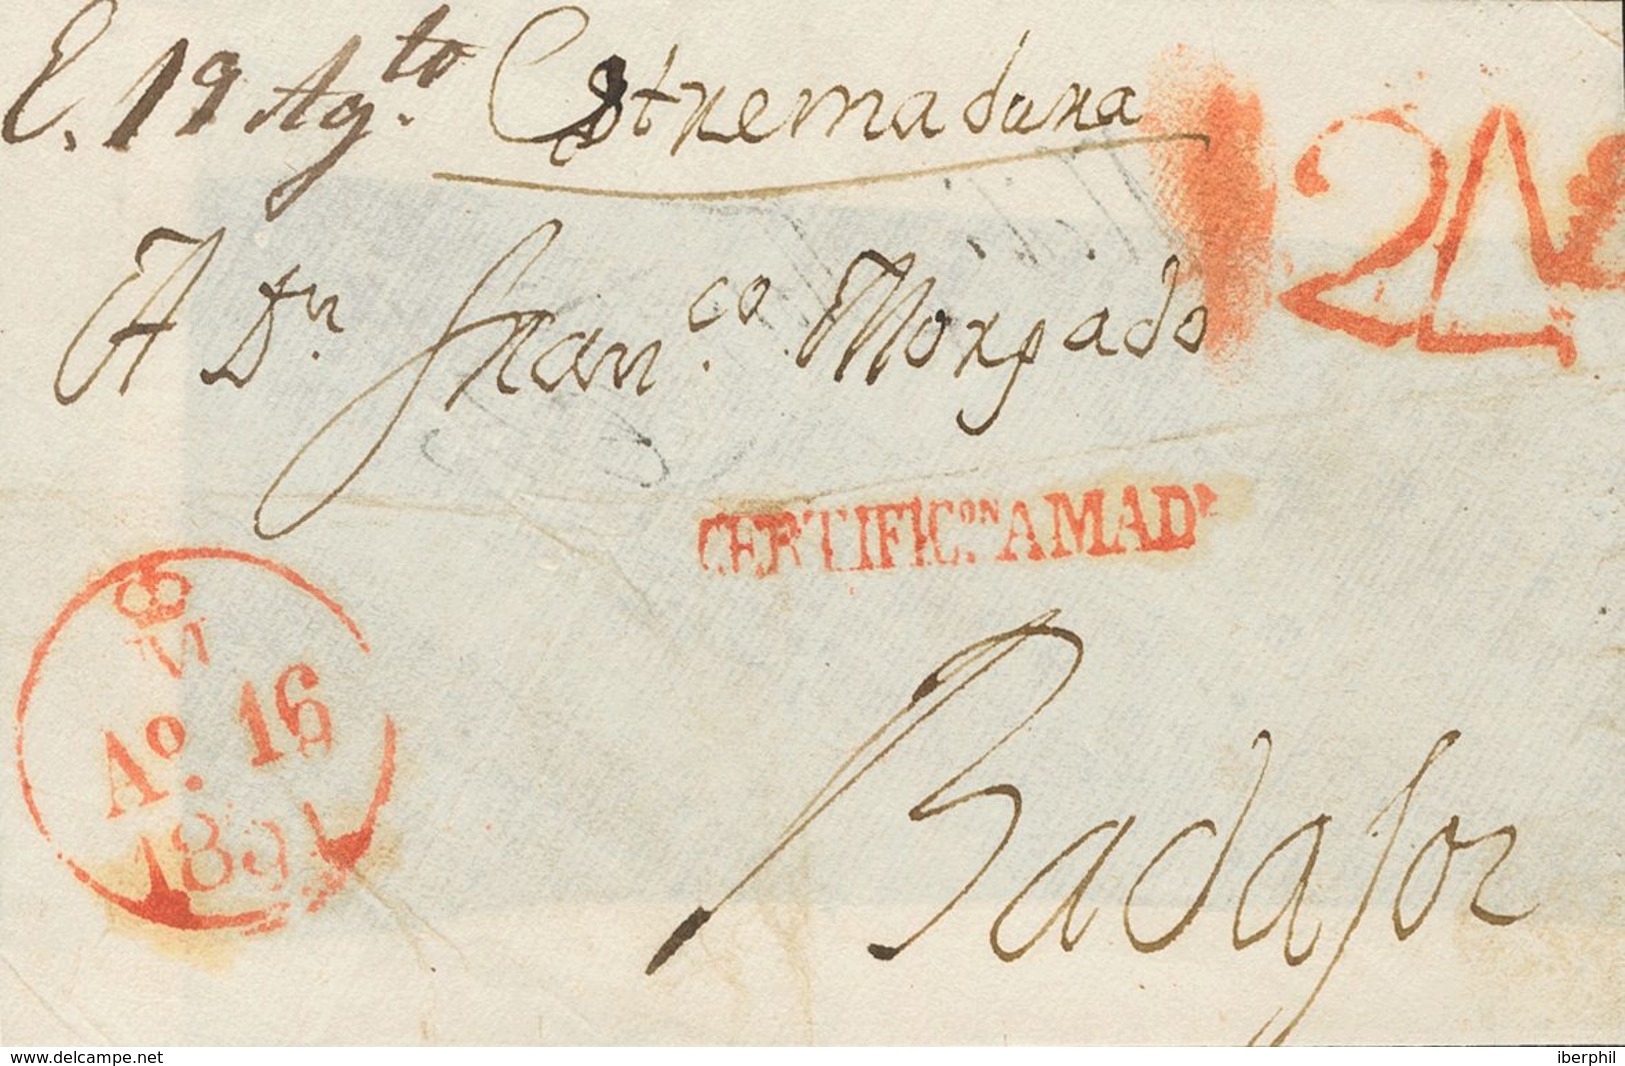 E. 19 Ag.to Estremadura
24
A Dn. Fran.co Morgado
CERTIFIC.ON A MADR
M
Ao. 16
1831
Badajoz
www.delcampe.net
iberphil